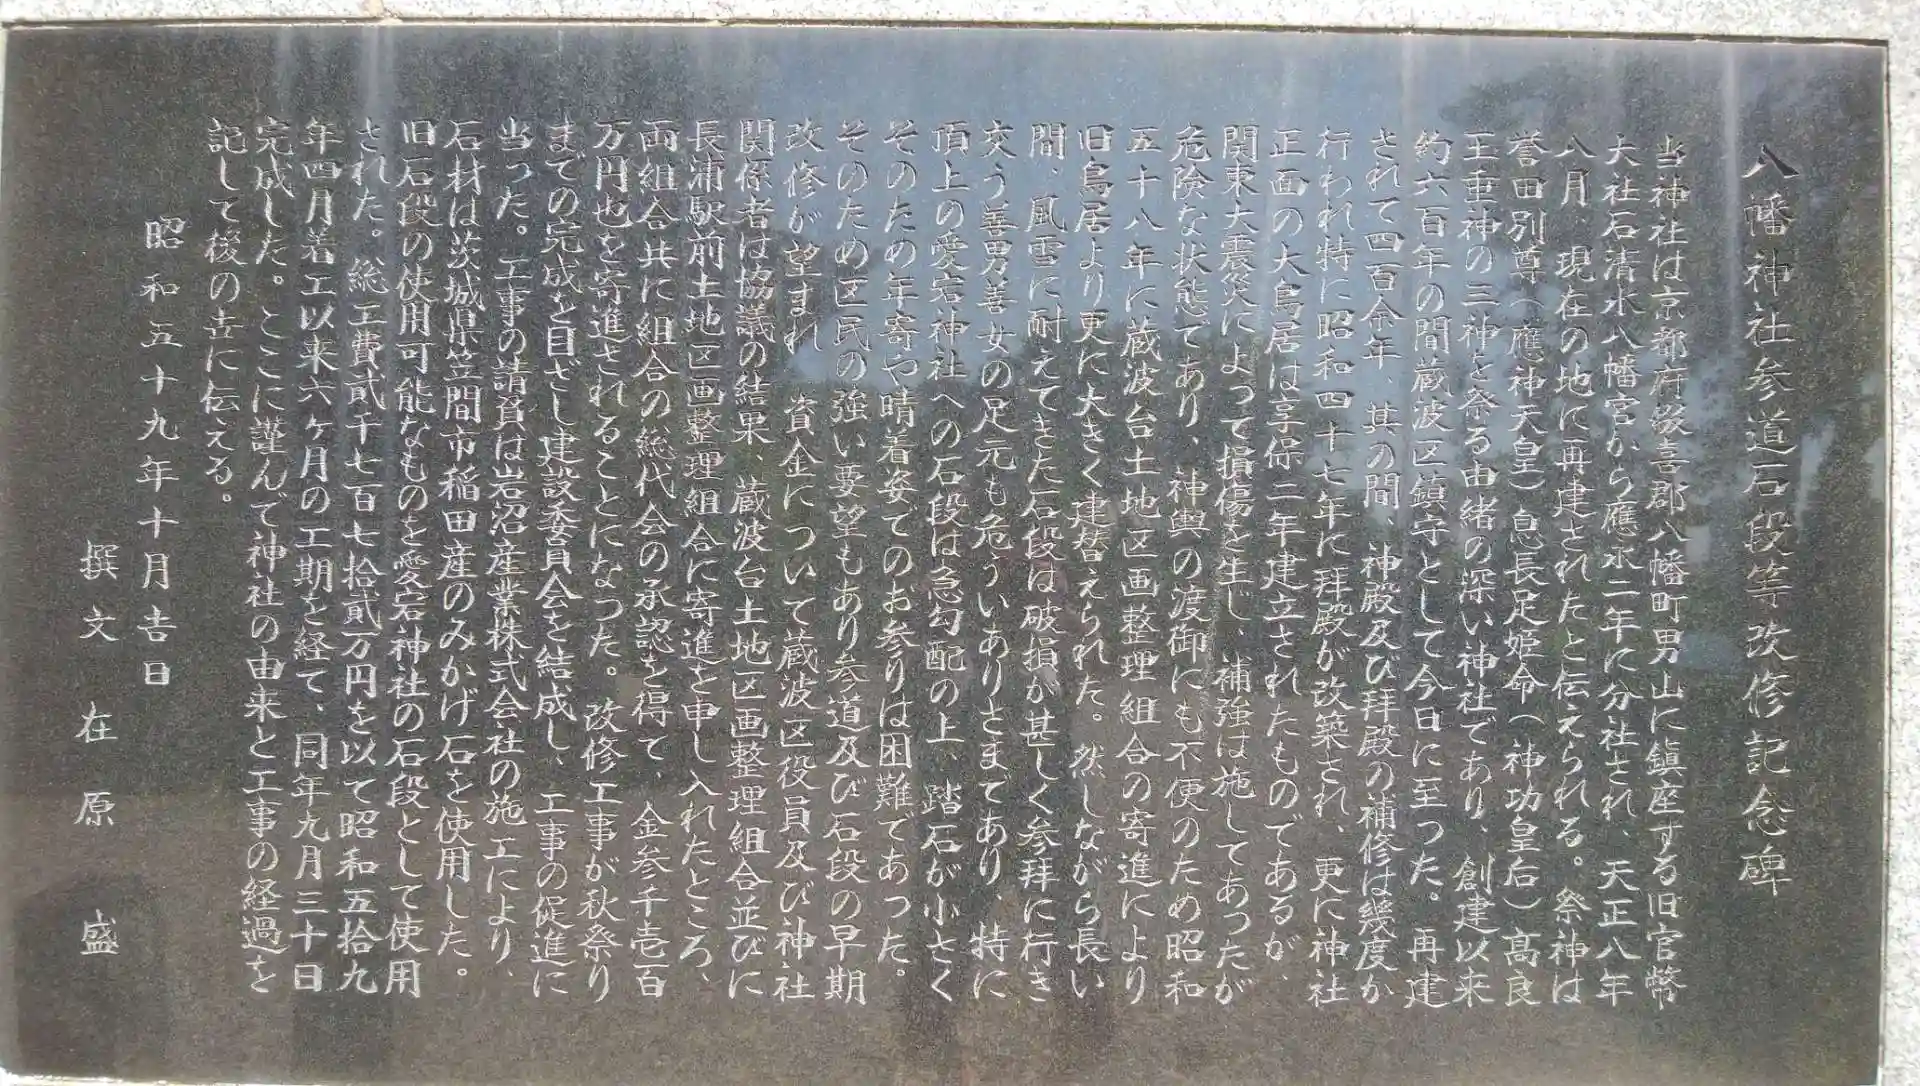 八幡神社参道石段等改修記念碑
当神社は京都府綴喜郡八幡町男山に鎮座する旧官幣
大社石清水八幡宮から應永二年に分社され、天正八年
八月、現在の地に再建されたと伝えられる。祭神は
誉田別尊（應神天皇）息長足姫命（神功皇后）高良
王垂神の三神を祭る由緒の深い神社であり、創建以来
約六百年の間蔵波区鎮守として今日に至った。再建
されて四百余年、其の間、神殿及び拝殿の補修は幾度か
行われ特に昭和四十七年に拝殿が改築され、更に神社
正面の大鳥居は享保二年建立されたものであるが、
関東大震災によって損傷を生じ、補強は施してあったが
危険な状態であり、神輿の渡御にも不便のため昭和
五十八年に蔵波台土地区画整理組合の寄進により
旧鳥居より更に大きく建替えられた。然しながら長い
間、風雪に耐えてきた石段は破損が甚しく参拝に行き
交う善男善女の足元も危ういありさまであり、特に
頂上の愛宕神社への石段は急勾配の上、踏石が小さく
そのため年寄や晴着姿でのお参りは困難であった。
そのため区民の強い要望もあり参道及び石段の早期
改修が望まれ、資金について蔵波区役員及び神社
関係者は協議の結果、蔵波台土地区画整理組合並びに
長浦駅前土地区画整理組合に寄進を申し入れたところ、
両組合共に組合の総代会の承認を得て、金参千壱百
万円也を寄進されることになった。改修工事が秋祭り
までの完成を目ざし建設委員会を結成し、工事の促進に
当った。工事の請負は岩沼産業株式会社の施工により、
石材は茨城県笠間市稲田産のみかげ石を使用した。
旧石段の使用可能なものを愛宕神社の石段として使用
された。総工費貳千七百七拾貳万円を以て昭和五拾九
年四月着工以来六ヶ月の工期を経て、同年九月三十日
完成した。ここに謹んで神社の由来と工事の経過を
記して後の世に伝える。
昭和五十九年十月吉日
撰文 在原 盛